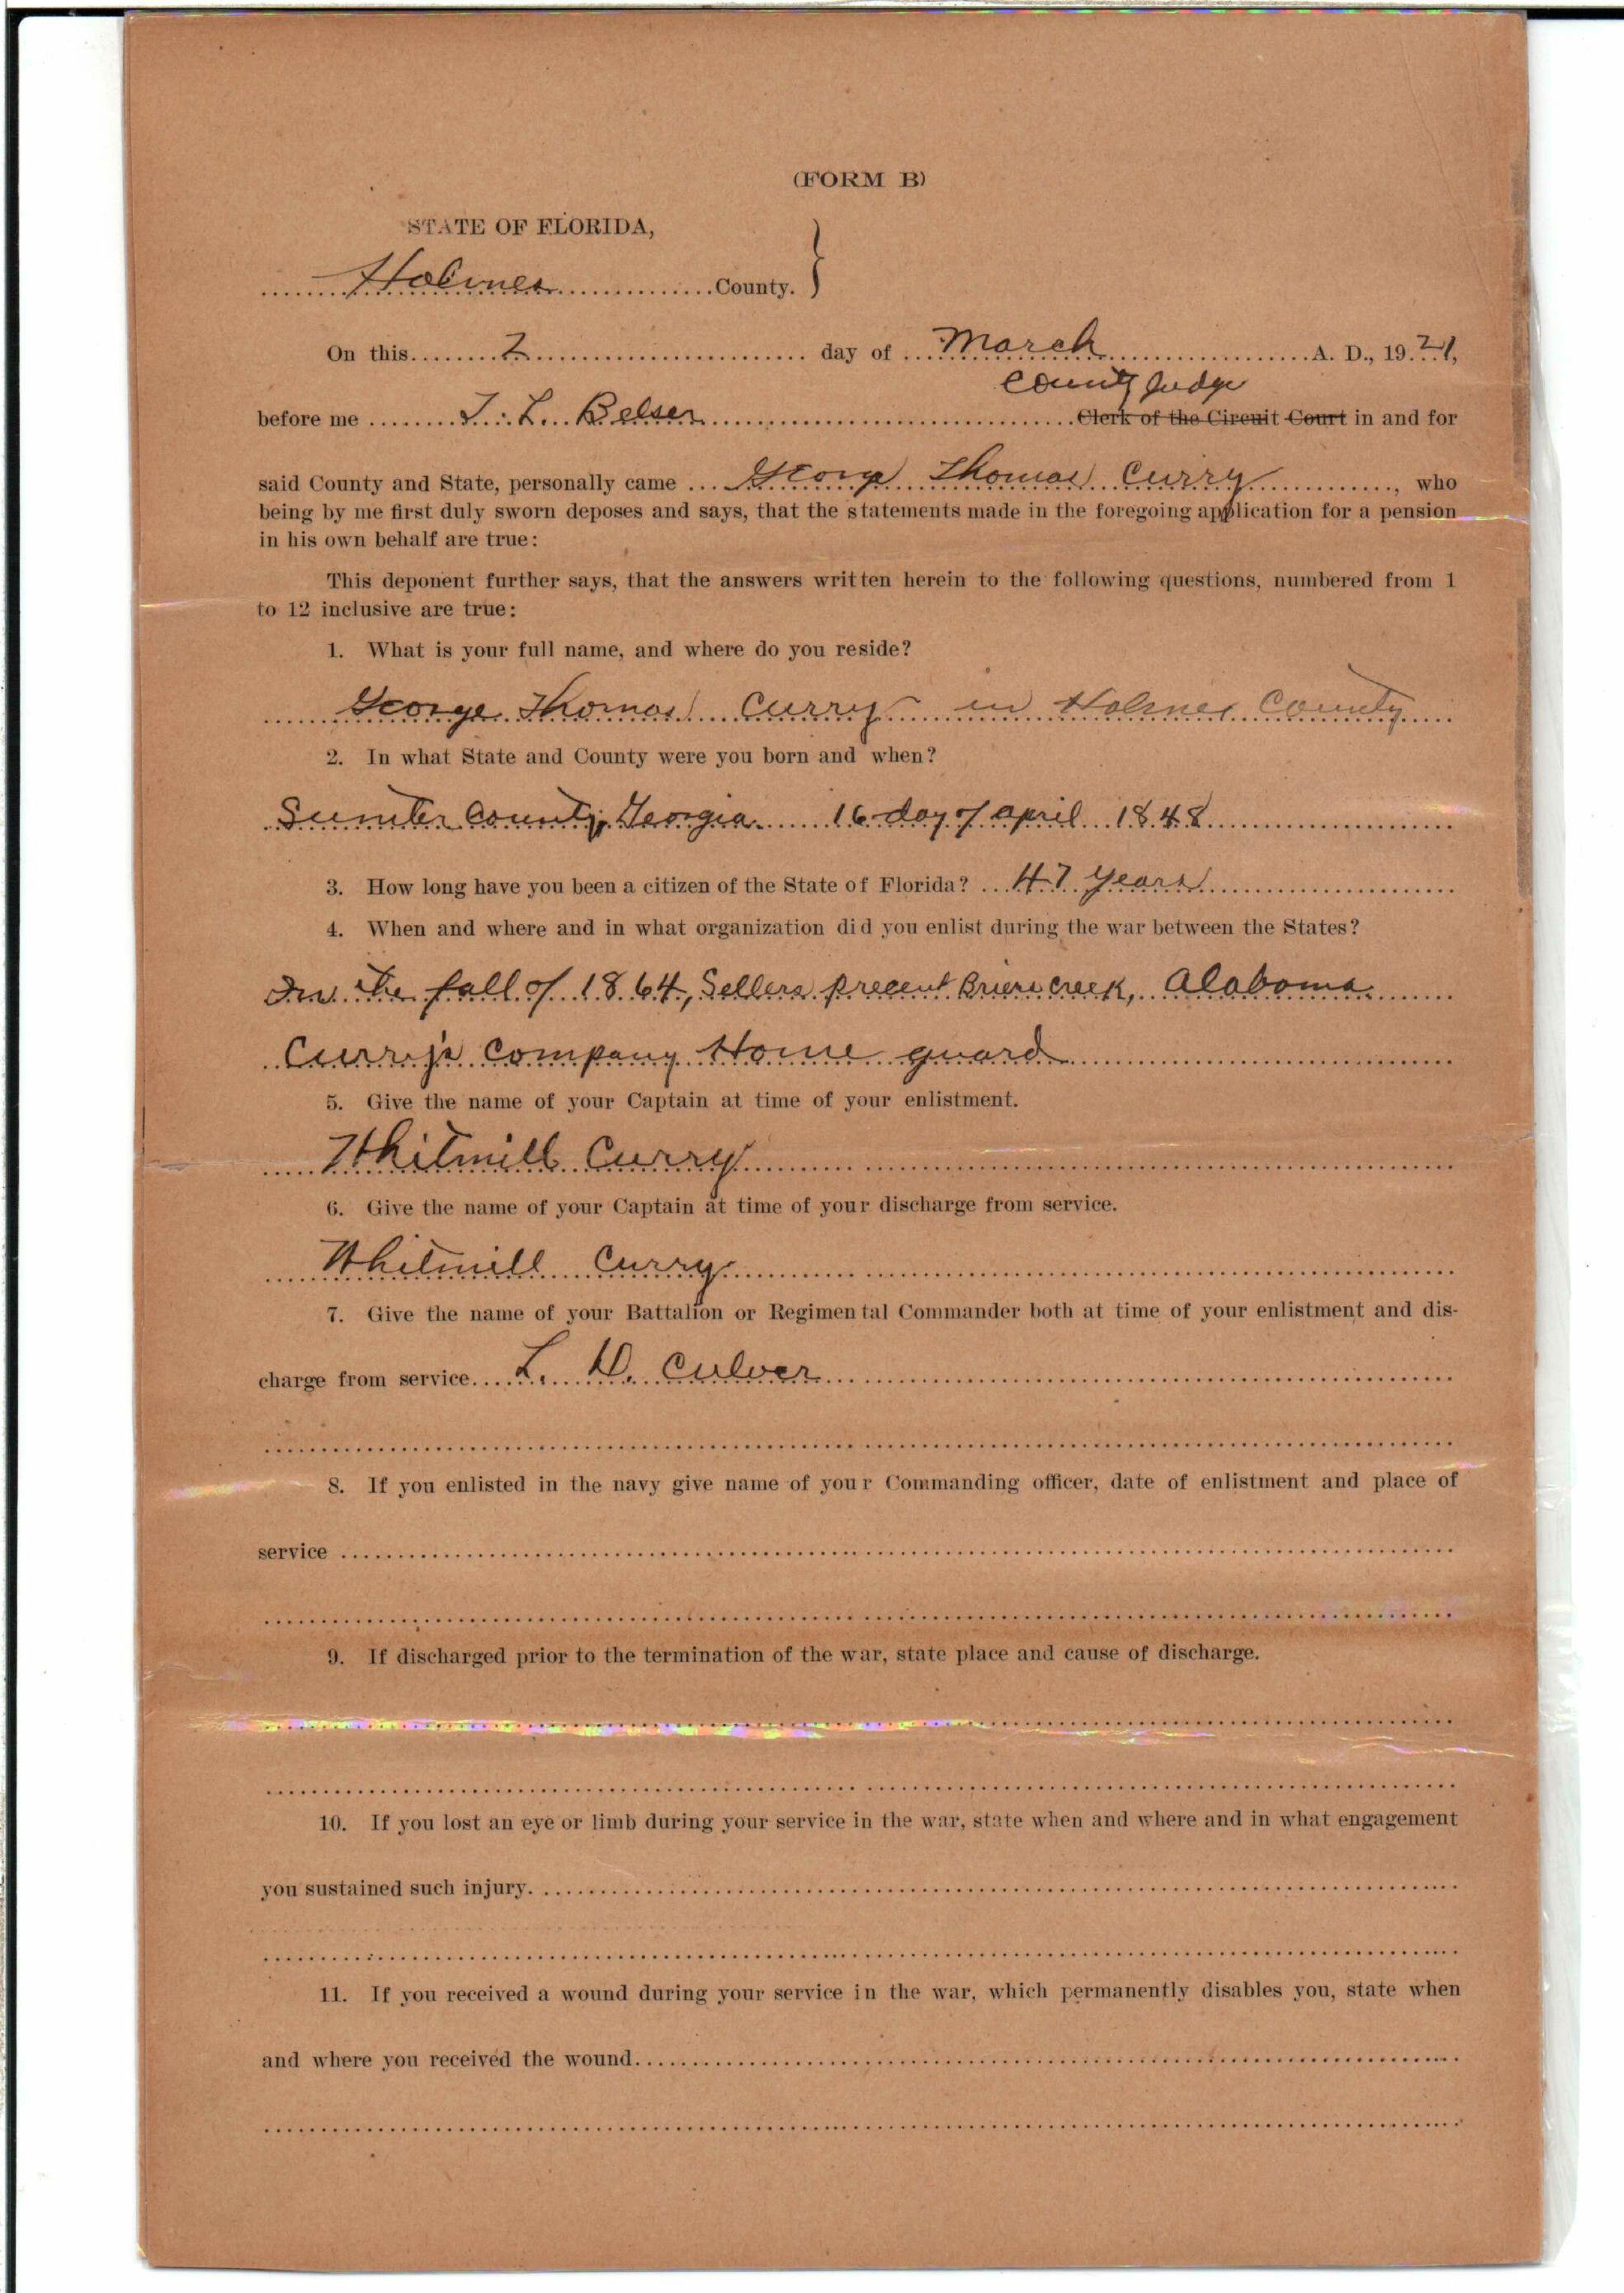 (FORM B)
STATE OF FLORIDA,
Holmes County.
On this 2 day of March A. D., 1921,
County Judge
before me J. L. Belser Clerk of the Circuit Court in and for
said County and State, personally came George Thomas Curry, who
being by me first duly sworn deposes and says, that the statements made in the foregoing application for a pension
in his own behalf are true:
This deponent further says, that the answers written herein to the following questions, numbered from 1
to 12 inclusive are true:
1. What is your full name, and where do you reside?
George Thomas Curry in Holmes County
2. In what State and County were you born and when?
Sumter County, Georgia 16 day of april 1848
3. How long have you been a citizen of the State of Florida? 47 Years
4. When and where and in what organization did you enlist during the war between the States?
In the fall of 1864, Sellers precent creek, Alabama
Curry's Company Home guard
5. Give the name of your Captain at time of your enlistment.
Whitmill Curry
6. Give the name of your Captain at time of your discharge from service.
Whitmill Curry
7. Give the name of your Battalion or Regimental Commander both at time of your enlistment and dis-
charge from service L. D. Culver
8. If you enlisted in the navy give name of your Commanding officer, date of enlistment and place of
service
9. If discharged prior to the termination of the war, state place and cause of discharge.
10. If you lost an eye or limb during your service in the war, state when and where and in what engagement
you sustained such injury.
11. If you received a wound during your service in the war, which permanently disables you, state when
and where you received the wound